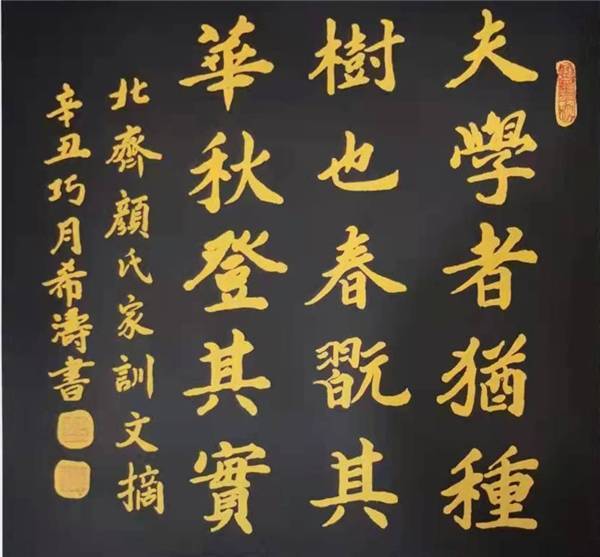 夫學者猶種
樹也春翫其
華秋登其實
北齊顏氏家訓文摘
辛丑巧月希濤書